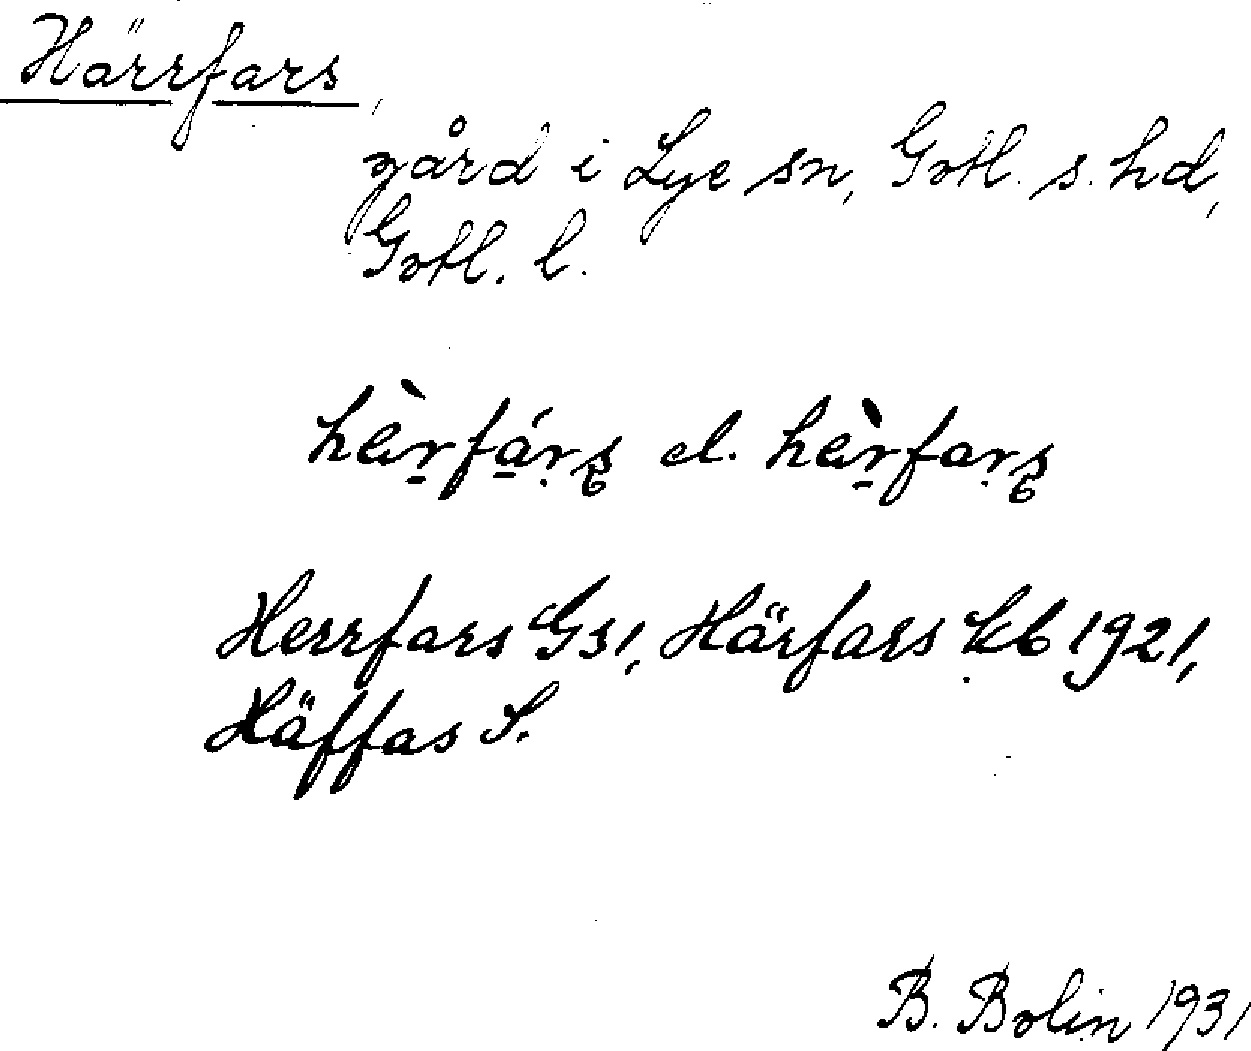 Härrfars,
gård i Lye sn, Gotl. s. hd,
Gotl. l.
hèr̠fá̠rs̤ el. hèr̠fars̤
Herrfars Gs1, Härfars kb 1921,
Häffas S.
B. Bolin 1931